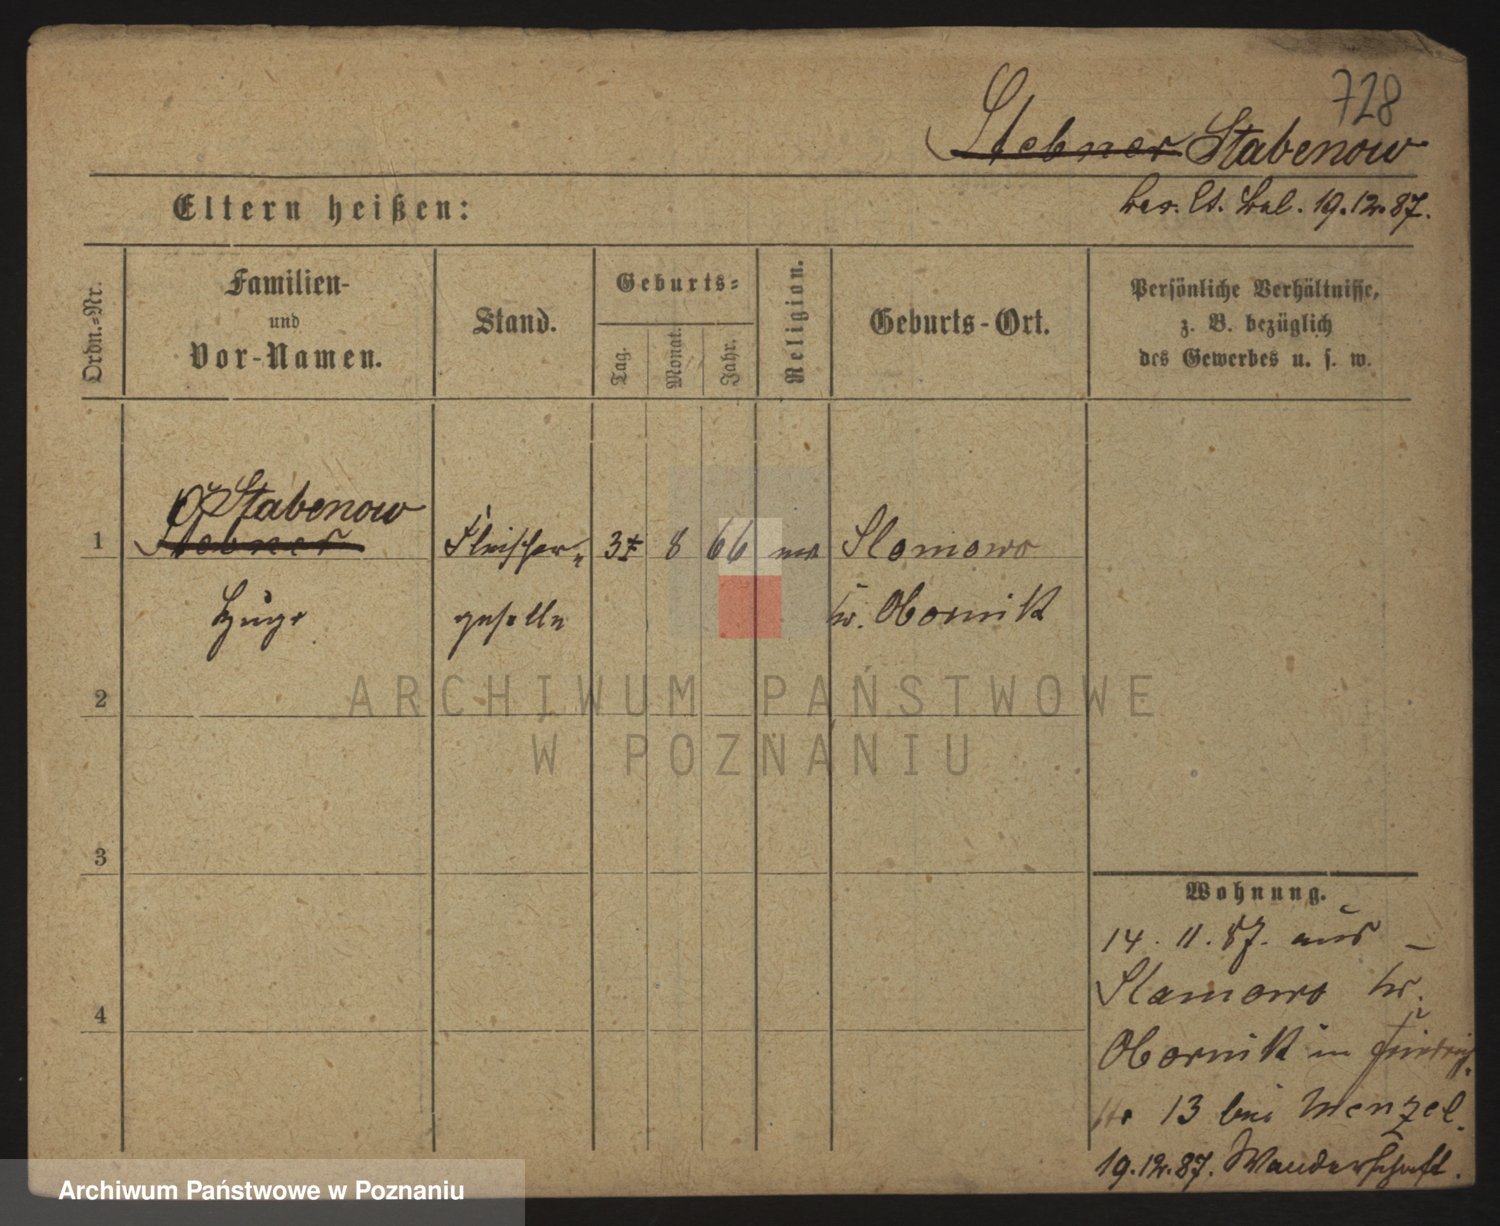 728
Stebner Stabenow
19.12.87.
Eltern heißen:
Ordn.-Nr.
Familien-
und
Vor-Namen.
Stand.
Geburts-
Tag.
Monat.
Jahr.
Religion.
Geburts-Ort.
Persönliche Verhältnisse,
z. B. bezüglich
des Gewerbes u. s. w.
Stabenow
1 Stebner Fleischer- 8 66 Slomowo
Hugo geselle Kr. Obornik
2
3
4
Wohnung.
14. 11. 87. aus
Slamowo Kr.
Obornik in Friedrich
str 13 bei Menzel.
19.12.87. Wanderschaft.
ARCHIWUM PAŃSTWOWE
W POZNANIU
Archiwum Państwowe w Poznaniu